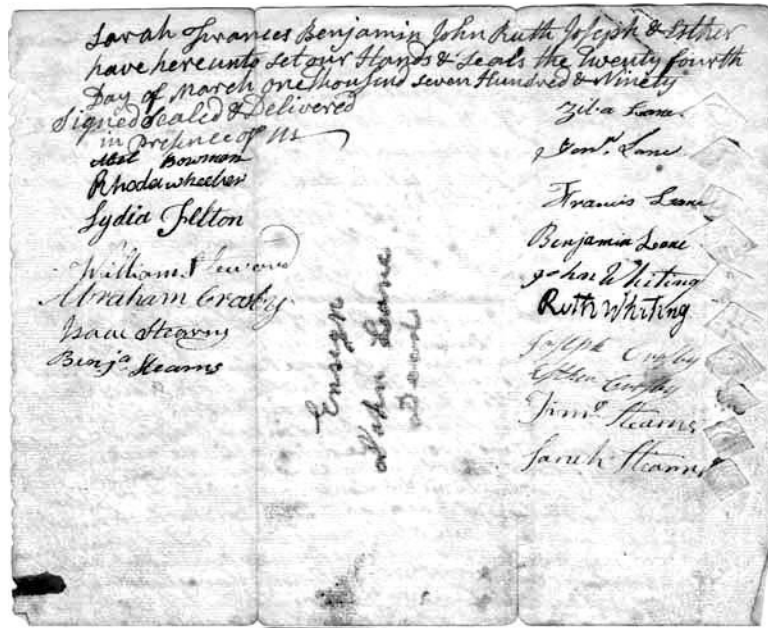 Sarah Frances Benjamin John Ruth Joseph & Esther
have hereunto set our Hands & Seals the Twenty fourth
Day of March one thousand seven Hundred & Ninety
Signed Sealed & Delivered
in Presence of us
Abel Bowman
Rhoda wheeler
Lydia Felton
William
Abraham Crosby
Isaac Stearns
Benja Stearns
Ensign
John Leane
Deed
Ziba Leane
Lane
Francis Leane
Benjamin Leane
John Whiting
Ruth Whiting
Joseph Crosby
Esther Crosby
Timo Stearns
Sarah Stearns